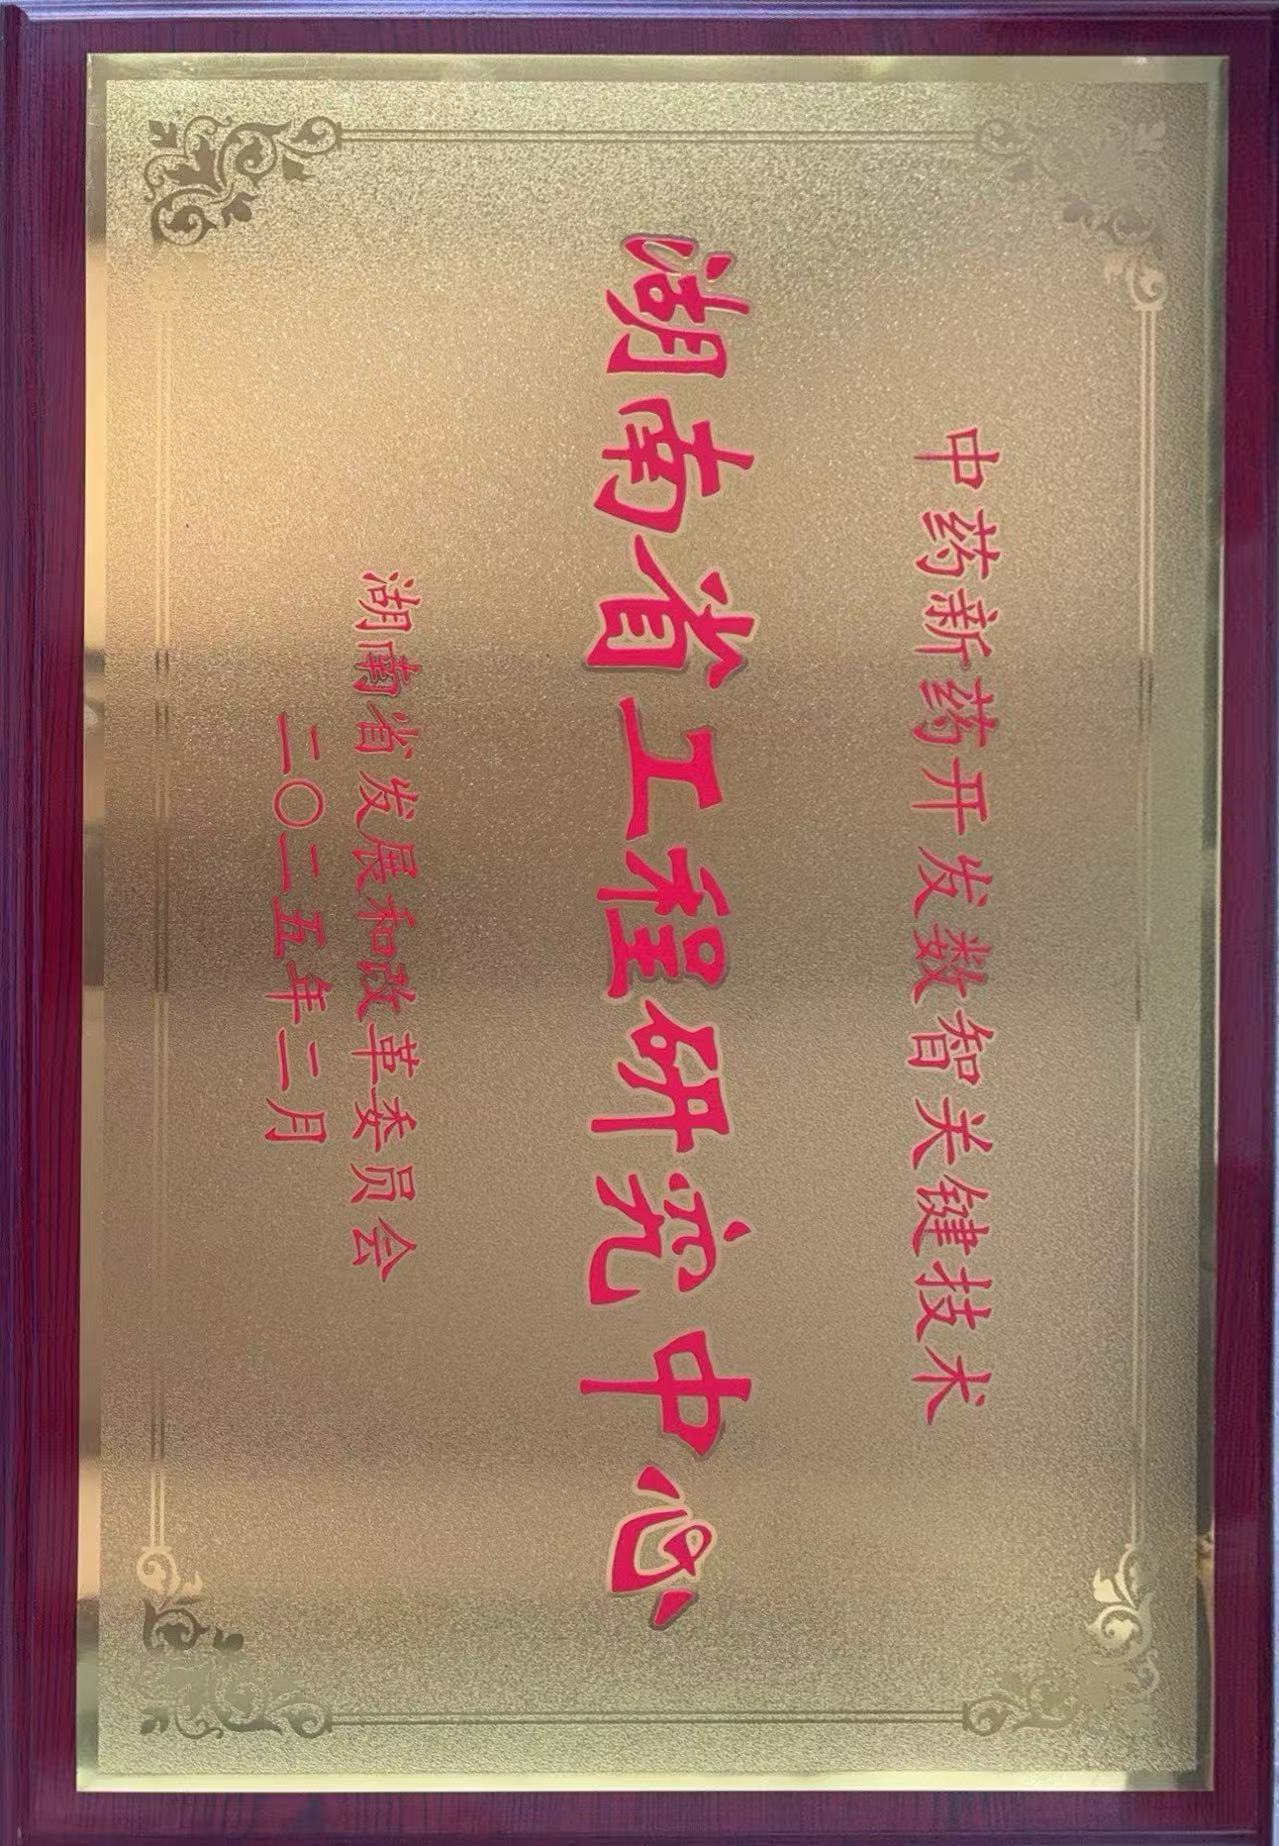 中药新药开发数智关键技术
湖南省工程研究中心
湖南省发展和改革委员会
二〇二五年二月